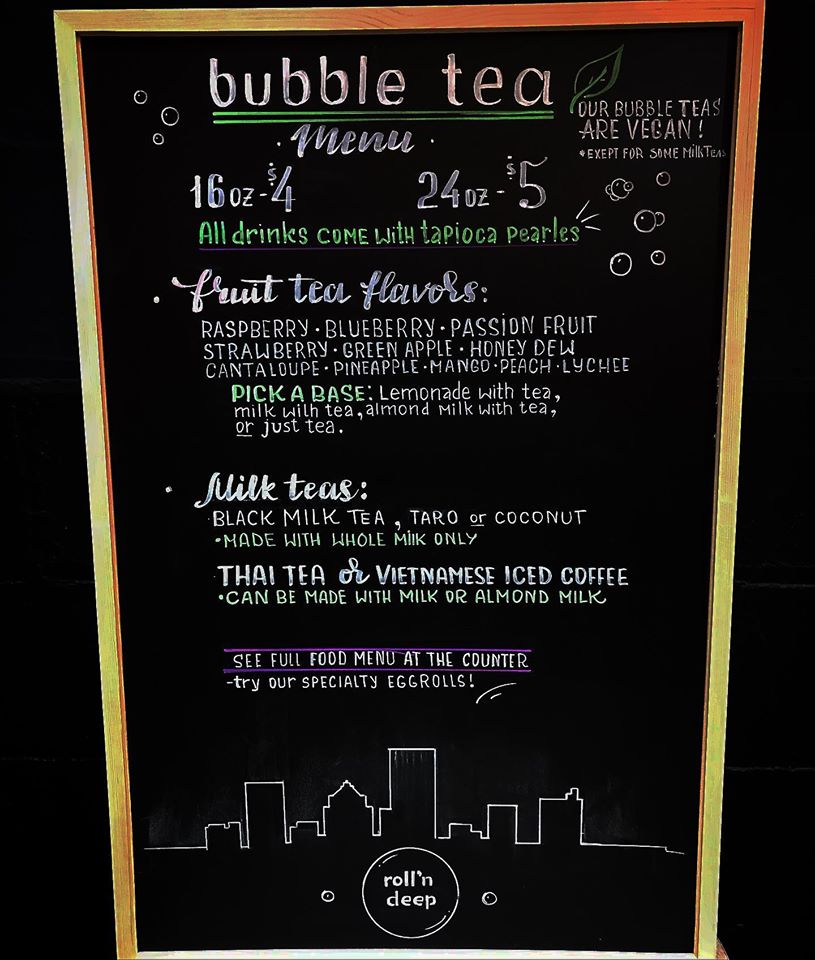 bubble tea
OUR BUBBLE TEAS
ARE VEGAN!
*EXEPT FOR SOME MilkTeas
· menu ·
16 oz - $4 24 oz - $5
All drinks come with tapioca pearles
· fruit tea flavors:
RASPBERRY · BLUEBERRY · PASSION FRUIT
STRAWBERRY · GREEN APPLE · HONEY DEW
CANTALOUPE · PINEAPPLE · MANGO · PEACH · LYCHEE
PICK A BASE: Lemonade with tea,
milk with tea, almond milk with tea,
or just tea.
· Milk teas:
BLACK MILK TEA, TARO or COCONUT
• MADE WITH WHOLE Milk ONLY
THAI TEA or VIETNAMESE ICED COFFEE
• CAN BE MADE WITH MILK OR ALMOND MILK
SEE FULL FOOD MENU AT THE COUNTER
-try our SPECIALTY EGGROLLS!
roll'n
deep